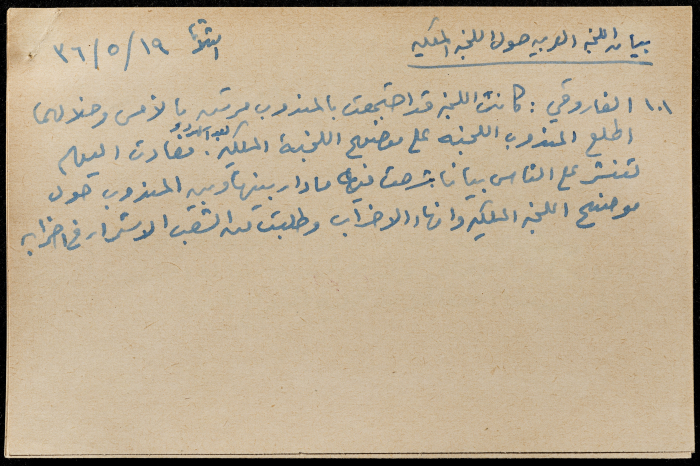 بيان اللجنة العربية حول اللجنة الملكية
الثلاثاء ١٩/٥/٣٦
١٠١ الفاروقي: كانت اللجنة قد اجتمعت بالمندوب مرتين بالأمس وخلالهما
اطلع المندوب اللجنة على موضوع اللجنة الملكية. فعادت اليوم
تنشر على الناس بيانا شرحت فيه ما دار بينها وبين المندوب حول
موضوع اللجنة الملكية وانهاء الاضراب وطلبت من الشعب الاستمرار في اضرابه